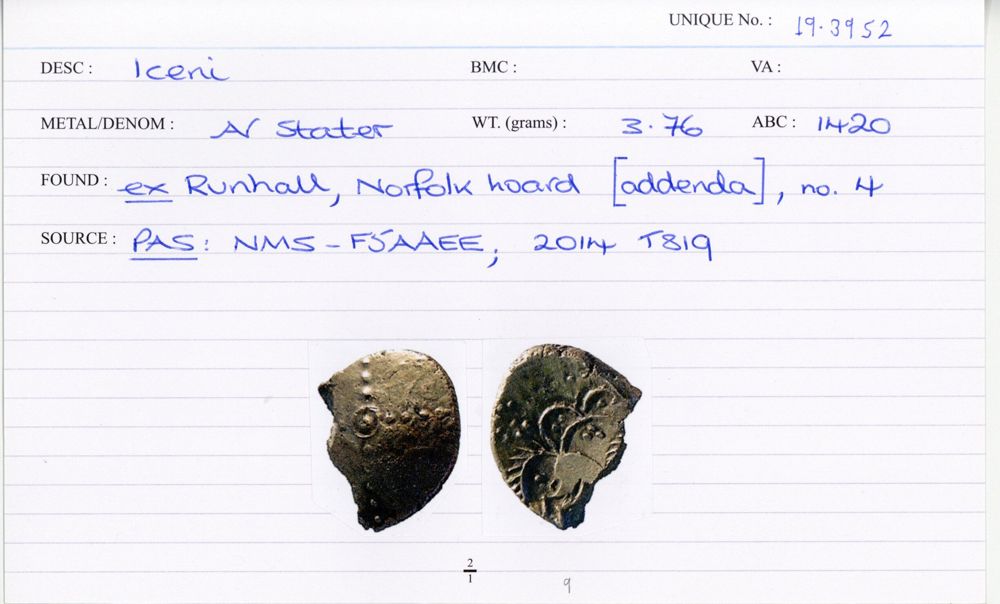 UNIQUE No. : 19.3952
DESC : Iceni BMC : VA :
METAL/DENOM : AV Stater WT. (grams) : 3.76 ABC : 1420
FOUND : ex Runhall, Norfolk hoard [addenda], no. 4
SOURCE : PAS: NMS-F5AAEE, 2014 T819
2
1
9